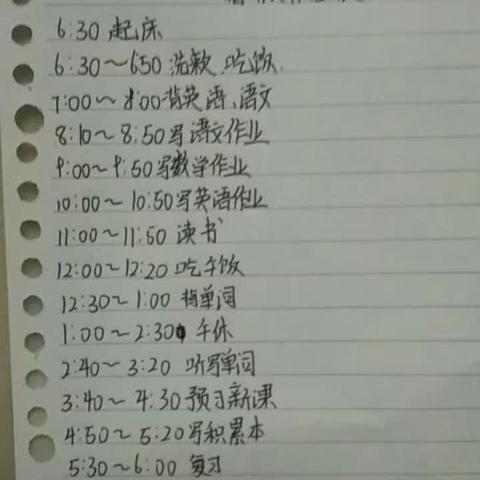 6:30 起床
6:30~650 洗漱、吃饭
7:00~8:00背英语、语文
8:10~8:50写语文作业
9:00~9:50写数学作业
10:00~10:50写英语作业
11:00~11:50 读书
12:00~12:20 吃午饭
12:30~1:00 背单词
1:00~2:30 午休
2:40~3:20 听写单词
3:40~4:30预习新课
4:50~5:20写积累本
5:30~6:00 复习